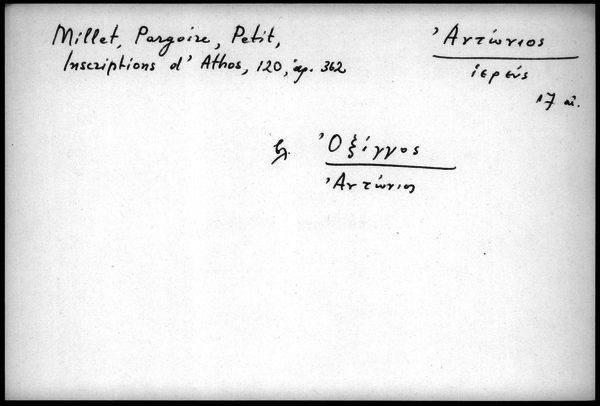 Millet, Pargoire, Petit,
Inscriptions d' Athos, 120, ἀρ. 362
Ἀντώνιος
ἱερεύς
17 αἰ.
βλ. Ὀξίγγος
Ἀντώνιος